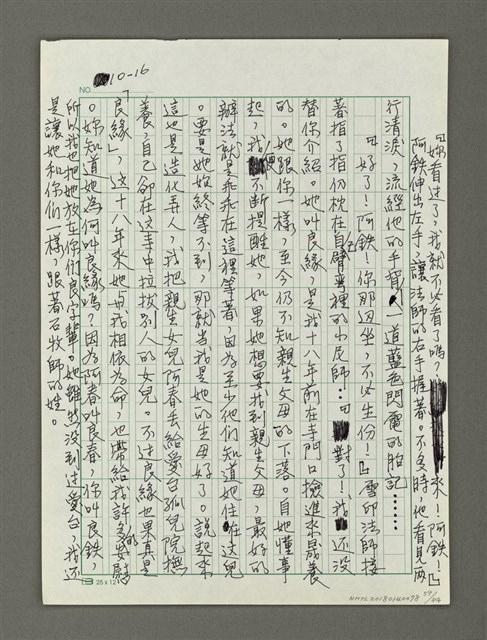 10-16
NO.
『妳看过了，我就不必看了嗎，來！阿鉄！』
阿鉄伸出左手，讓法師的右手握著。不多時，他看見两
行清淚，流經他的手臂，一道藍色閃電的胎記……
『好了！阿鉄！你那边坐，不必生份！』雪印法師接
著指了指仍枕在自己臂弯裡的小尼師…『對了！我还没
替你介紹。她叫良緣，是我十八年前在寺門口撿進來晟養
的。她跟你一樣，至今仍不知親生父母的下落。自她懂事
起，我便不断提醒她，如果她想要找到親生父母，最好的
辦法就是乖乖在這裡等著，因為至少他们知道她住在这兒
。要是她始終等不到，那就当我是她的生母好了。說起來
這也是造化弄人，我把親生女兒阿春丢給愛台孤兒院撫
養，自己卻在这寺中拉拔别人的女兒。不过良緣也果真是
「良緣」，这十八年來她与我相依為命，也帶給我許多的安慰
。妳知道她為何叫良緣嗎？因為阿春叫良春，你叫良鉄，
所以我也把她放在你们良字輩。她雖然没到过愛台，我还
是讓她和你们一樣，跟著石牧師的姓。
25 x 12
NMTL20180140098
54/64